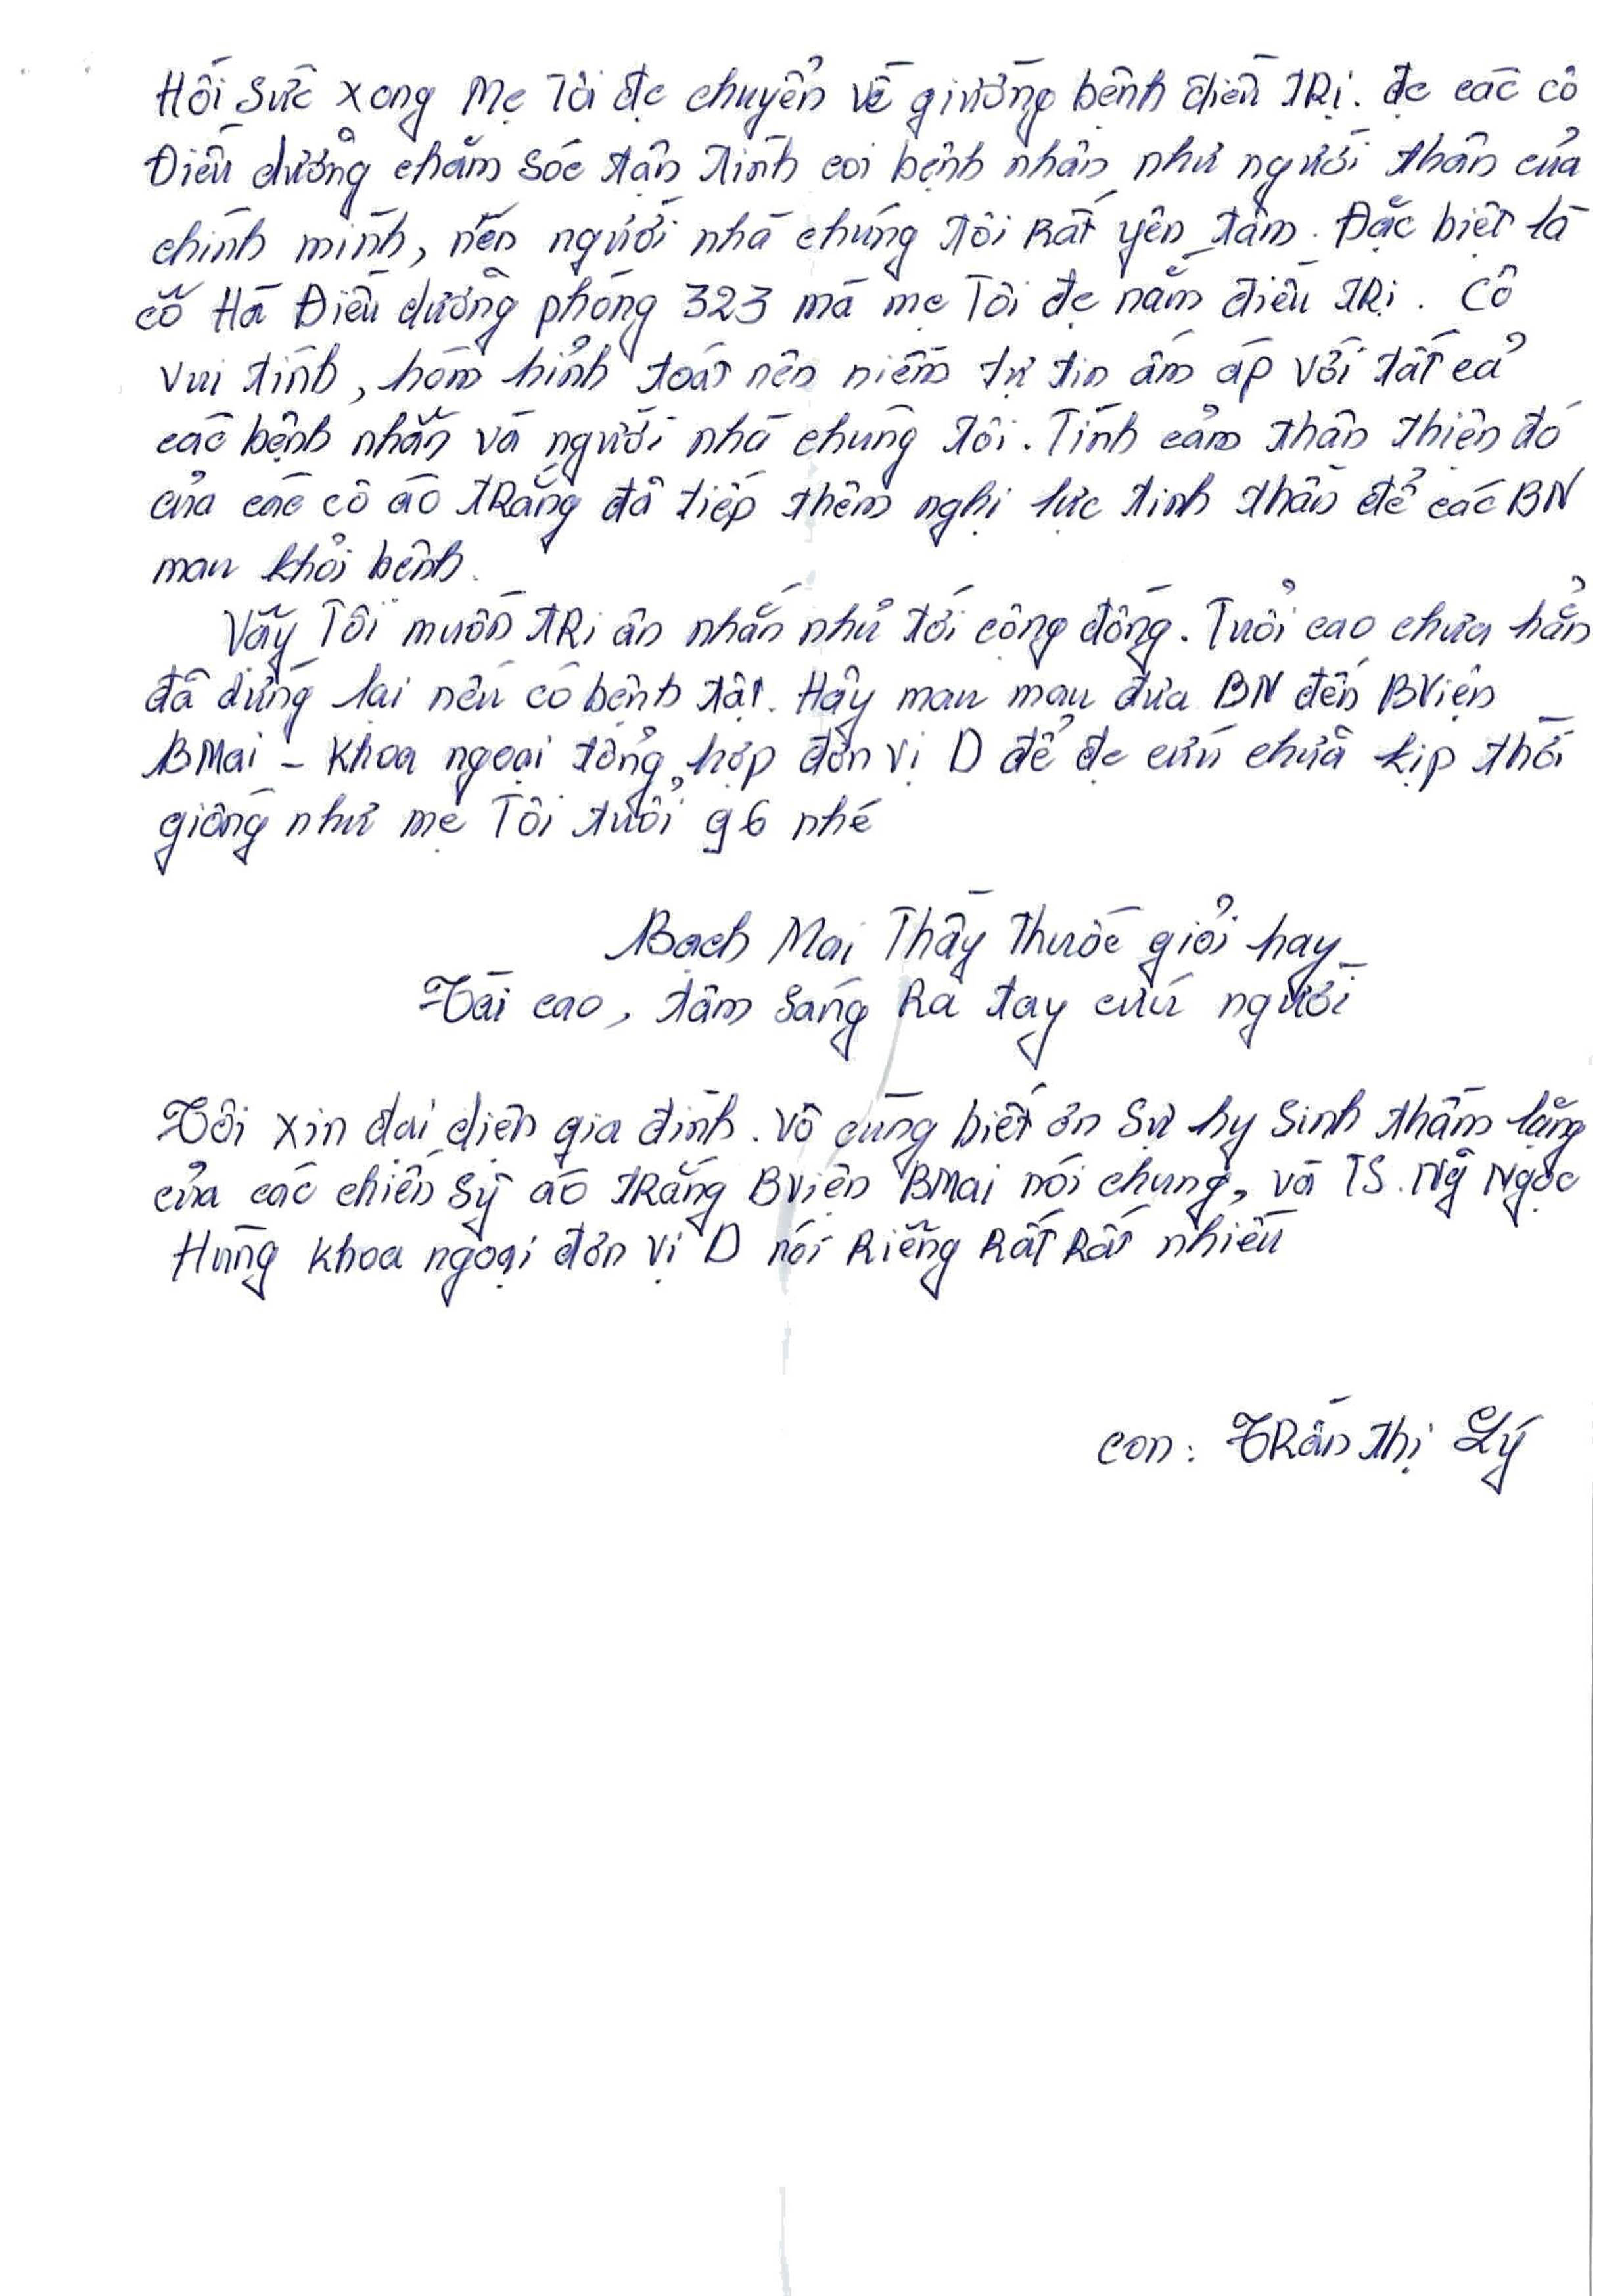 Hồi sức xong Mẹ Tôi đc chuyển về giường bệnh điều TRị. đc các cô
Điều dưỡng chăm sóc tận tình coi bệnh nhân như người thân của
chính mình, nên người nhà chúng tôi Rất yên tâm. Đặc biệt là
cô Hà Điều dưỡng phòng 323 mà mẹ Tôi đc nằm điều TRị. Cô
vui tính, hóm hỉnh toát nên niềm tự tin ấm áp với tất cả
các bệnh nhân và người nhà chúng tôi. Tình cảm thân thiện đó
của các cô áo tRắng đã tiếp thêm nghị lực tinh thần để các BN
mau khỏi bệnh.
Vậy Tôi muốn tRi ân nhắn nhủ tới cộng đồng. Tuổi cao chưa hẳn
đã dừng lại nếu có bệnh tật. Hãy mau mau đưa BN đến BViện
BMai - Khoa ngoại tổng hợp đơn vị D để đc cứu chữa kịp thời
giống như mẹ Tôi tuổi 96 nhé
Bạch Mai Thầy Thuốc giỏi hay
Tài cao, tâm sáng Ra tay cứu người
Tôi xin đại diện gia đình. Vô cùng biết ơn sự hy sinh thầm lặng
của các chiến sỹ áo tRắng BViện BMai nói chung, và TS. Ng̃ Ngọc
Hùng khoa ngoại đơn vị D nói Riêng Rất Rất nhiều
con: TRần Thị Lý